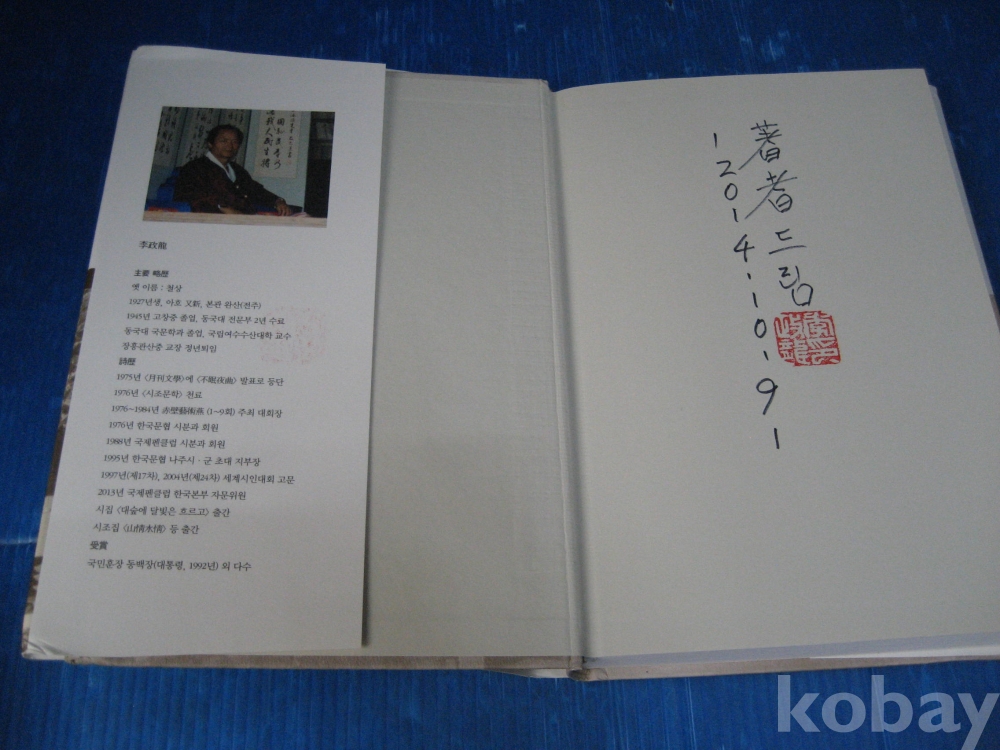 李政龍
主要 略歷
옛 이름 : 철상
1927년생, 아호 又新, 본관 완산(전주)
1945년 고창중 졸업, 동국대 전문부 2년 수료
동국대 국문학과 졸업, 국립여수수산대학 교수
장흥관산중 교장 정년퇴임
詩歷
1975년 〈月刊文學〉에 〈不眠夜曲〉 발표로 등단
1976년 〈시조문학〉 천료
1976~1984년 赤壁藝術蕉 (1~9회) 주최 대회장
1976년 한국문협 시분과 회원
1988년 국제펜클럽 시분과 회원
1995년 한국문협 나주시 · 군 초대 지부장
1997년(제17차), 2004년(제24차) 세계시인대회 고문
2013년 국제펜클럽 한국본부 자문위원
시집 〈대숲에 달빛은 흐르고〉 출간
시조집 〈山情水情〉 등 출간
受賞
국민훈장 동백장(대통령, 1992년) 외 다수
著者드림
2014.10.9
kobay